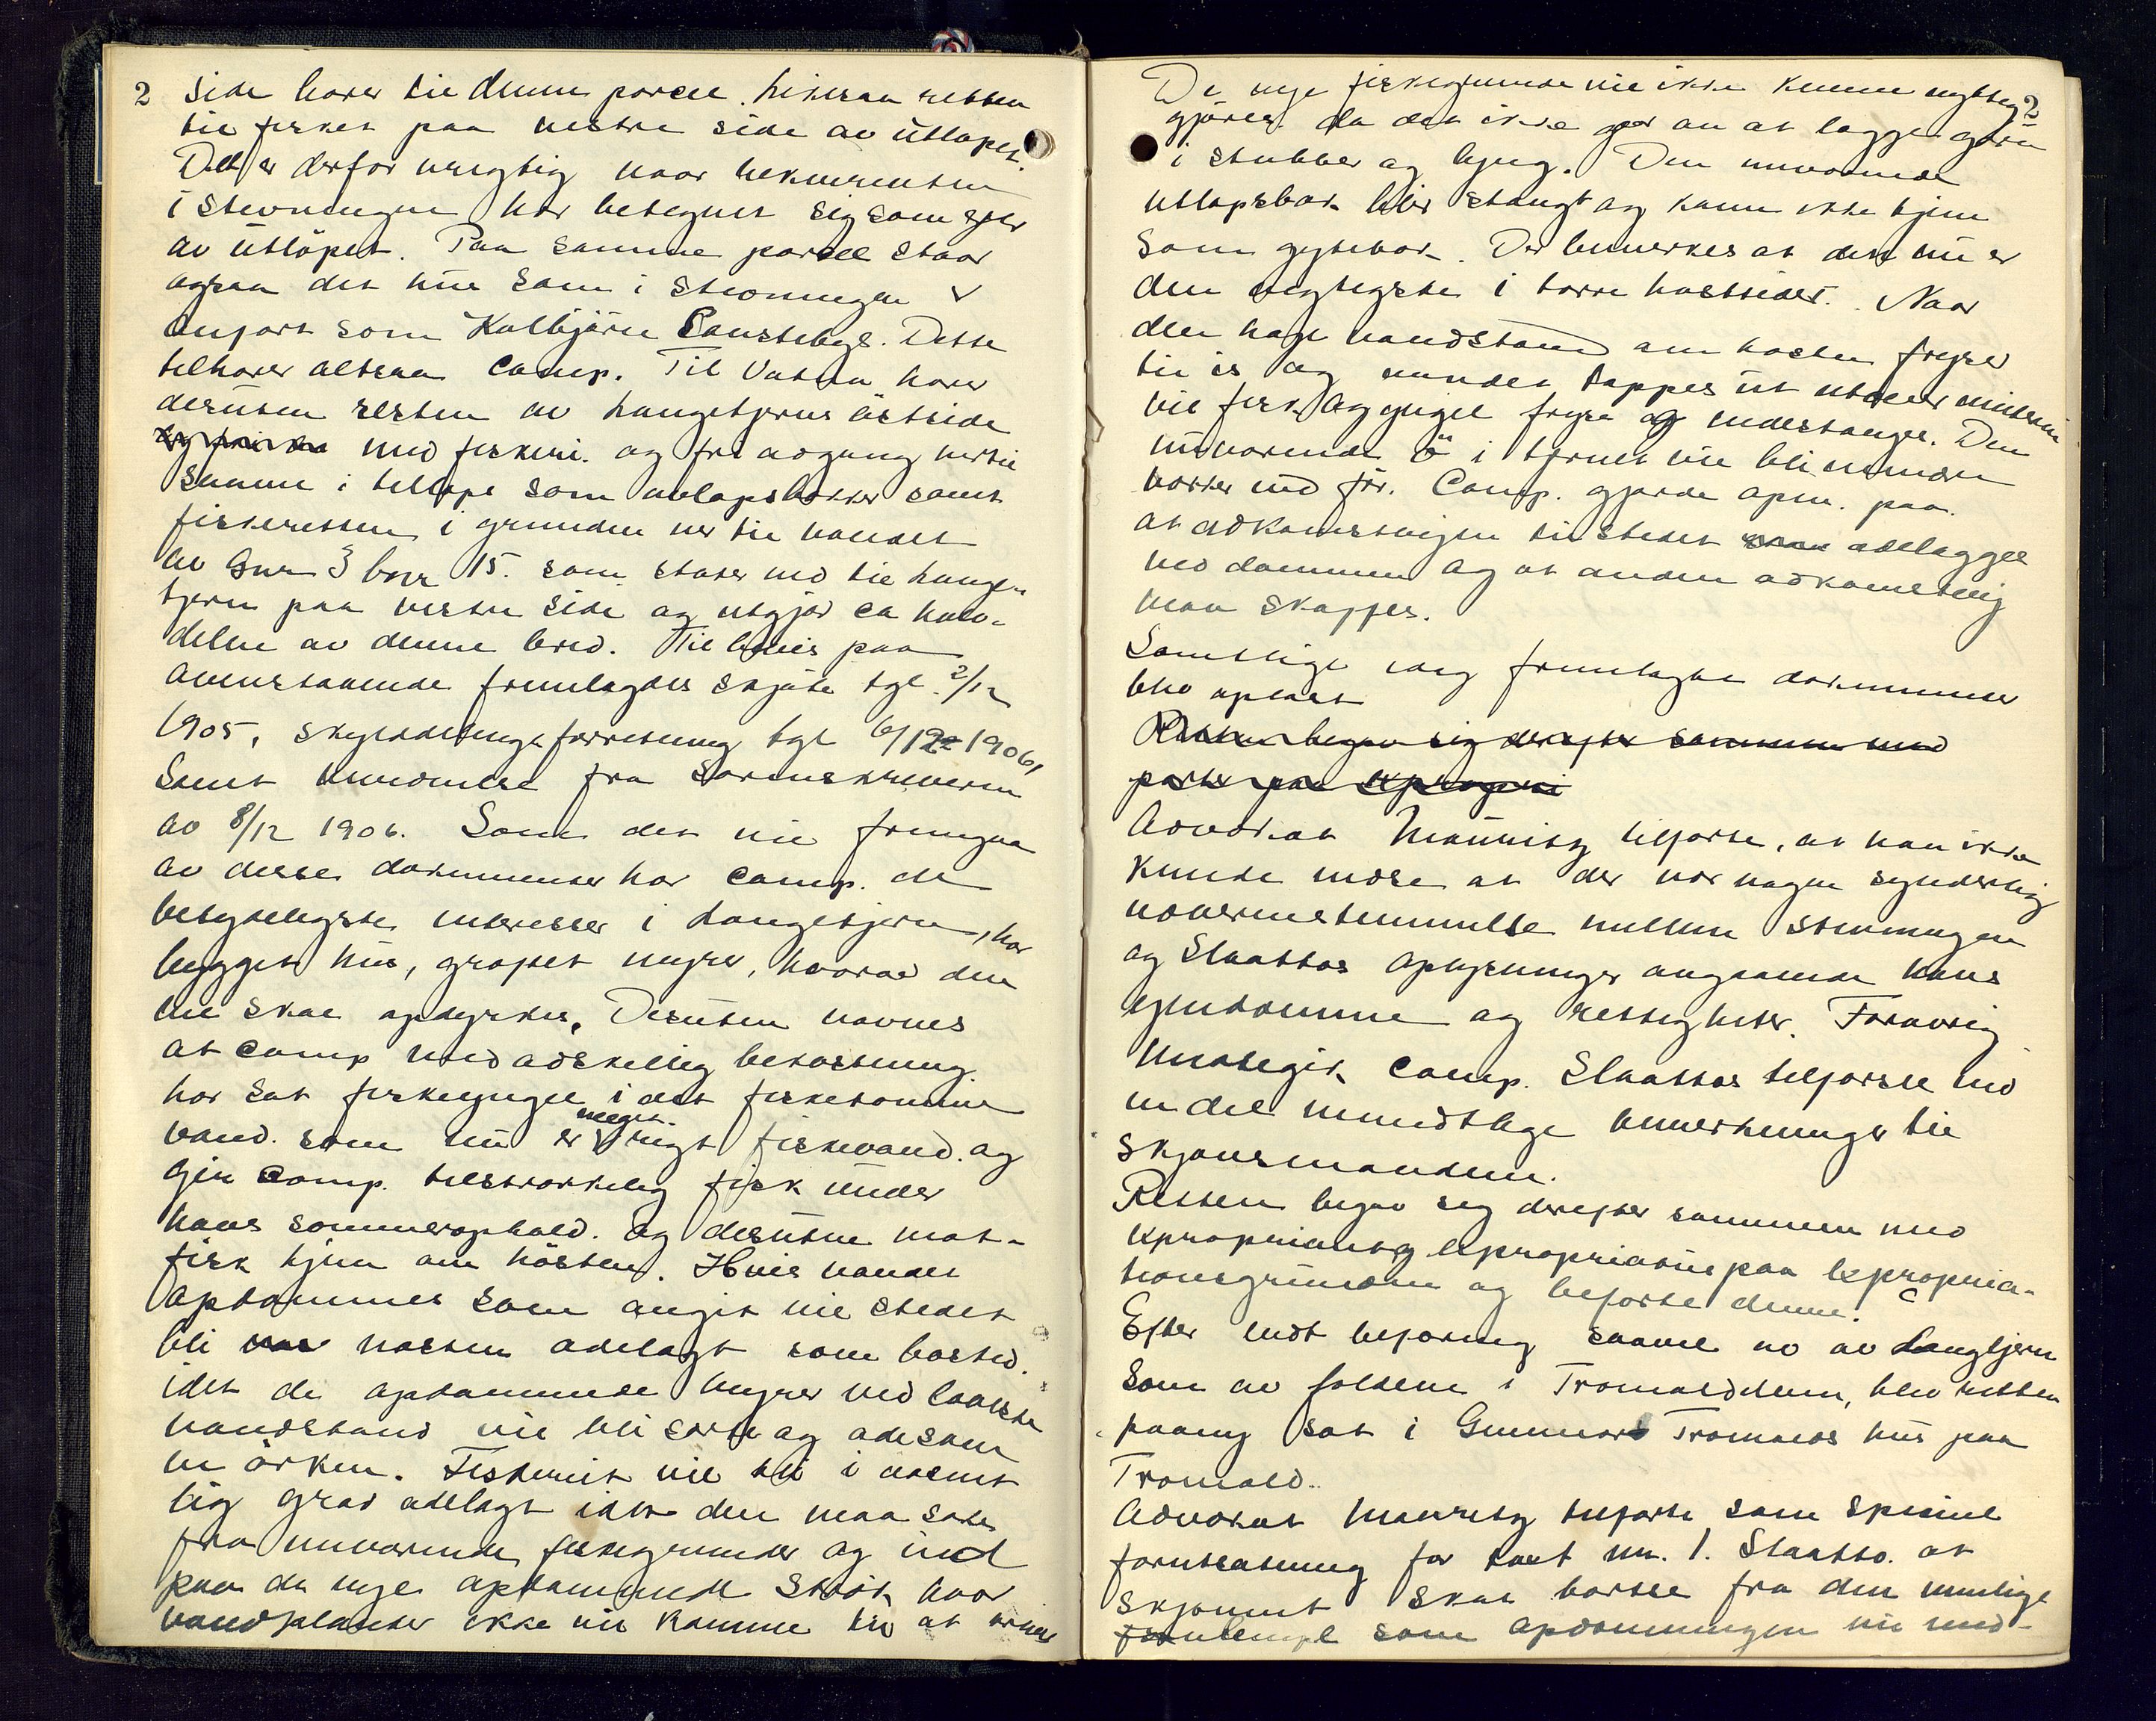 2
side hører til denne parcel. Likesaa retten
til fisket paa vestre side av utløpet.
Det er derfor urigtig naar rekvirenten
i stevningen har betegnet sig som eier
av utløpet. Paa samme parcel staar
ogsaa det hus som i stevningen er
anført som Kolbjørn Taustebys. Dette
tilhører altsaa Comp. Til Vatna hører
desuten resten av Langetjerns østside
med fiskeri og fri adgang hertil
samme i tilløps som avløpsbækker samt
fiskeretten i grunden ner til vandet
av Gnr 3 bnr 15. som støter ned til Lange-
tjern paa vestre side og utgjør ca halv-
delen av denne bred. Til bevis paa
ovenstaaende fremlagdes skjøte tgl. 2/12
1905, skylddelingsforretning tgl 6/12 1906,
samt kjendelse fra Sorenskriveren
av 8/12 1906. Som det vil fremgaa
av disse dokumenter har Comp. de
betydeligste interesser i Langetjern, har
bygget hus, grøftet myrer, hvorav den
ene skal opdyrkes. Desuten nævnes
at Comp med adskillig bekostning
har sat fiskeyngel i det fisketomme
vand som nu er meget rigt fiskevand og
gir Comp. tilstrækkelig fisk under
hans sommerophold. og desuten mat-
fisk hjem om høsten. Hvis vandet
opdæmmes som angit vil stedet
bli næsten ødelagt som bosted.
idet de opdæmmede myrer ved laveste
vandstand vil bli sorte og øde som
en ørken. Fiskeriet vil bli i væsent-
lig grad ødelagt idet den maa søke
fra nuværende fiskegrunder og ind
paa de nye opdæmmede strøk hvor
vandplanter ikke vil komme til at trives
2
De nye fiskegrunde vil ikke kunne nyttig-
gjøres da det ikke gaar an at lægge garn
i stubber og lyng. Den nuværende
utløpsbæk blir stængt og kan ikke tjene
som gytebæk. Det bemerkes at den nu er
den vigtigste i tørre høsttider. Naar
den høie vandstand om høsten fryser
til is og vandet tappes ut utover vinteren
vil fisk og yngel fryse og indestænges. Den
nuværende ø i tjernet vil bli mindre
værd end før. Comp. gjorde opm. paa
at adkomstveien til stedet ødelægges
ved dammen og at anden adkomstvei
maa skaffes.
Samtlige idag fremlagte dokumenter
blev oplæst
Retten begav sig derefter sammen med
parter paa expropri
Advokat Mauritz tilførte, at han ikke
kunde indse at der var nogen synderlig
uoverenstemmelse mellem stevningen
og Slaattas oplysninger angaaende hans
eiendomme og rettigheter. Forøvrig
undergik Comp. Slaattas tilførsel ved
en del mundtlige bemerkninger til
skjønsmændene.
Retten begav sig derefter sammen med
expropriant og expropriater paa expropria-
tionsgrunden og beførte denne.
Efter endt befaring saavel av Langtjern
som av faldene i Tromaldelven, blev retten
paany sat i Gunnar Tromalds hus paa
Tromald.
Advokat Mauritz tilførte som speciel
forutsætning for takst nr. 1. Slaatto. at
skjønnet skal bortse fra den mulige
som opdæmningen vil med-